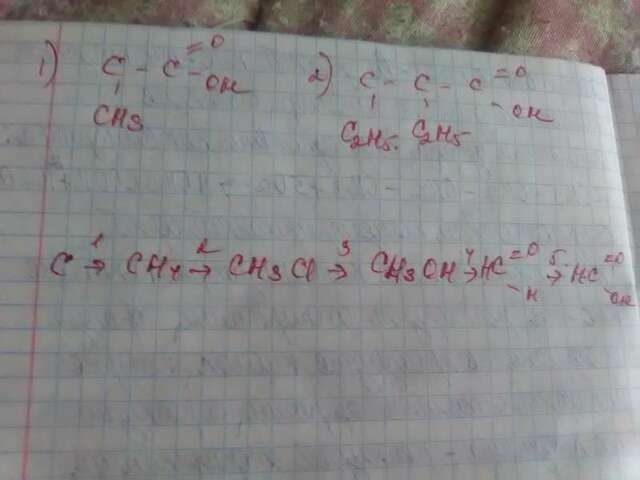 1) C - C =O - OH 2) C - C - C =O - OH
CH3 C2H5. C2H5
C 1→ CH4 2→ CH3Cl 3→ CH3OH 4→ HC =O - H 5→ HC =O - OH